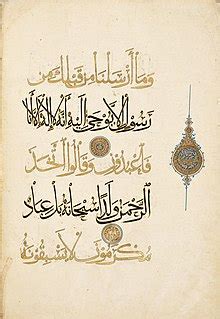 وما أرسلنا من قبلك من
رسول إلا نوحي إليه أنه لا إله إلا أنا
فاعبدون وقالوا اتخذ
الرحمن ولدا سبحانه بل عباد
مكرمون لا يسبقونه